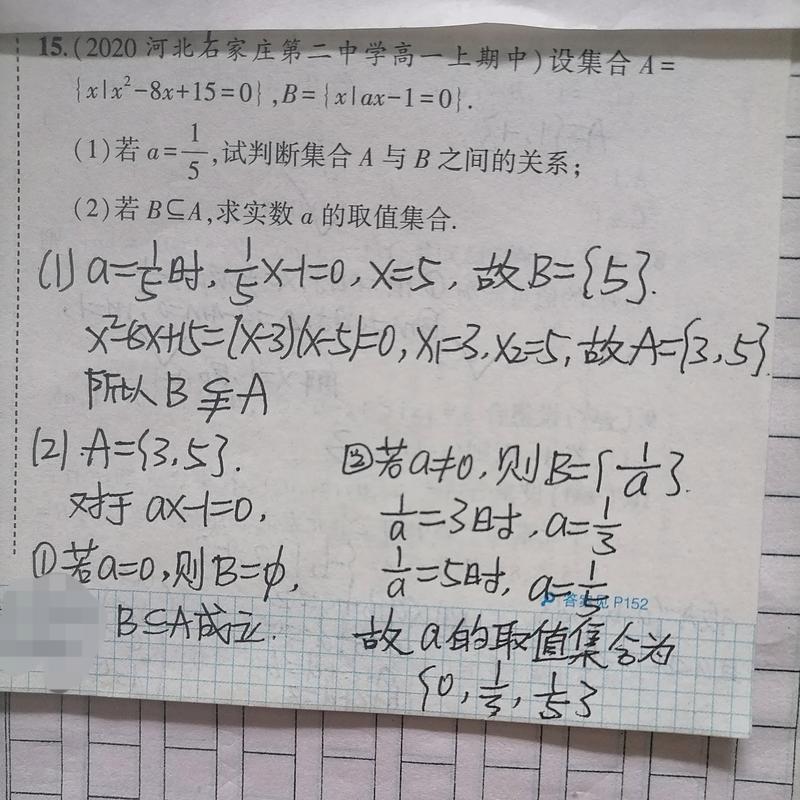 15.(2020 河北石家庄第二中学高一上期中)设集合 A=
{x|x²-8x+15=0},B={x|ax-1=0}.
(1)若 a=1/5,试判断集合 A 与 B 之间的关系;
(2)若 B⊆A,求实数 a 的取值集合.
(1) a=1/5时, 1/5x-1=0, x=5, 故B={5}.
x²-8x+15=(x-3)(x-5)=0, x₁=3, x₂=5, 故A={3,5}.
所以 B⫋A
(2) A={3,5}.
对于 ax-1=0,
①若a=0,则B=∅,
B⊆A成立.
②若a≠0,则B={1/a}.
1/a=3时, a=1/3
1/a=5时, a=1/5
答案见 P152
故 a的取值集合为
{0, 1/3, 1/5}